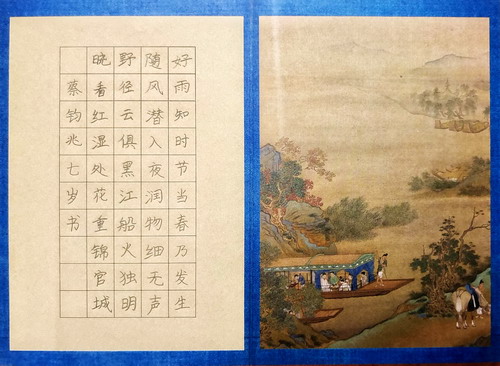 好雨知时节当春乃发生
随风潜入夜润物细无声
野径云俱黑江船火独明
晓看红湿处花重锦官城
蔡钧兆七岁书